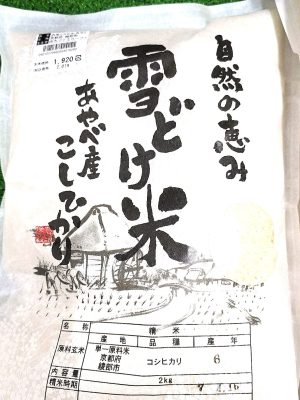 1,920
自然の恵み
雪どけ米
あやべ産
こしひかり
名称 精米
原料玄米 産地 品種 産年
単一原料米
京都府
綾部市
コシヒカリ 6
内容量 2kg
精米時期